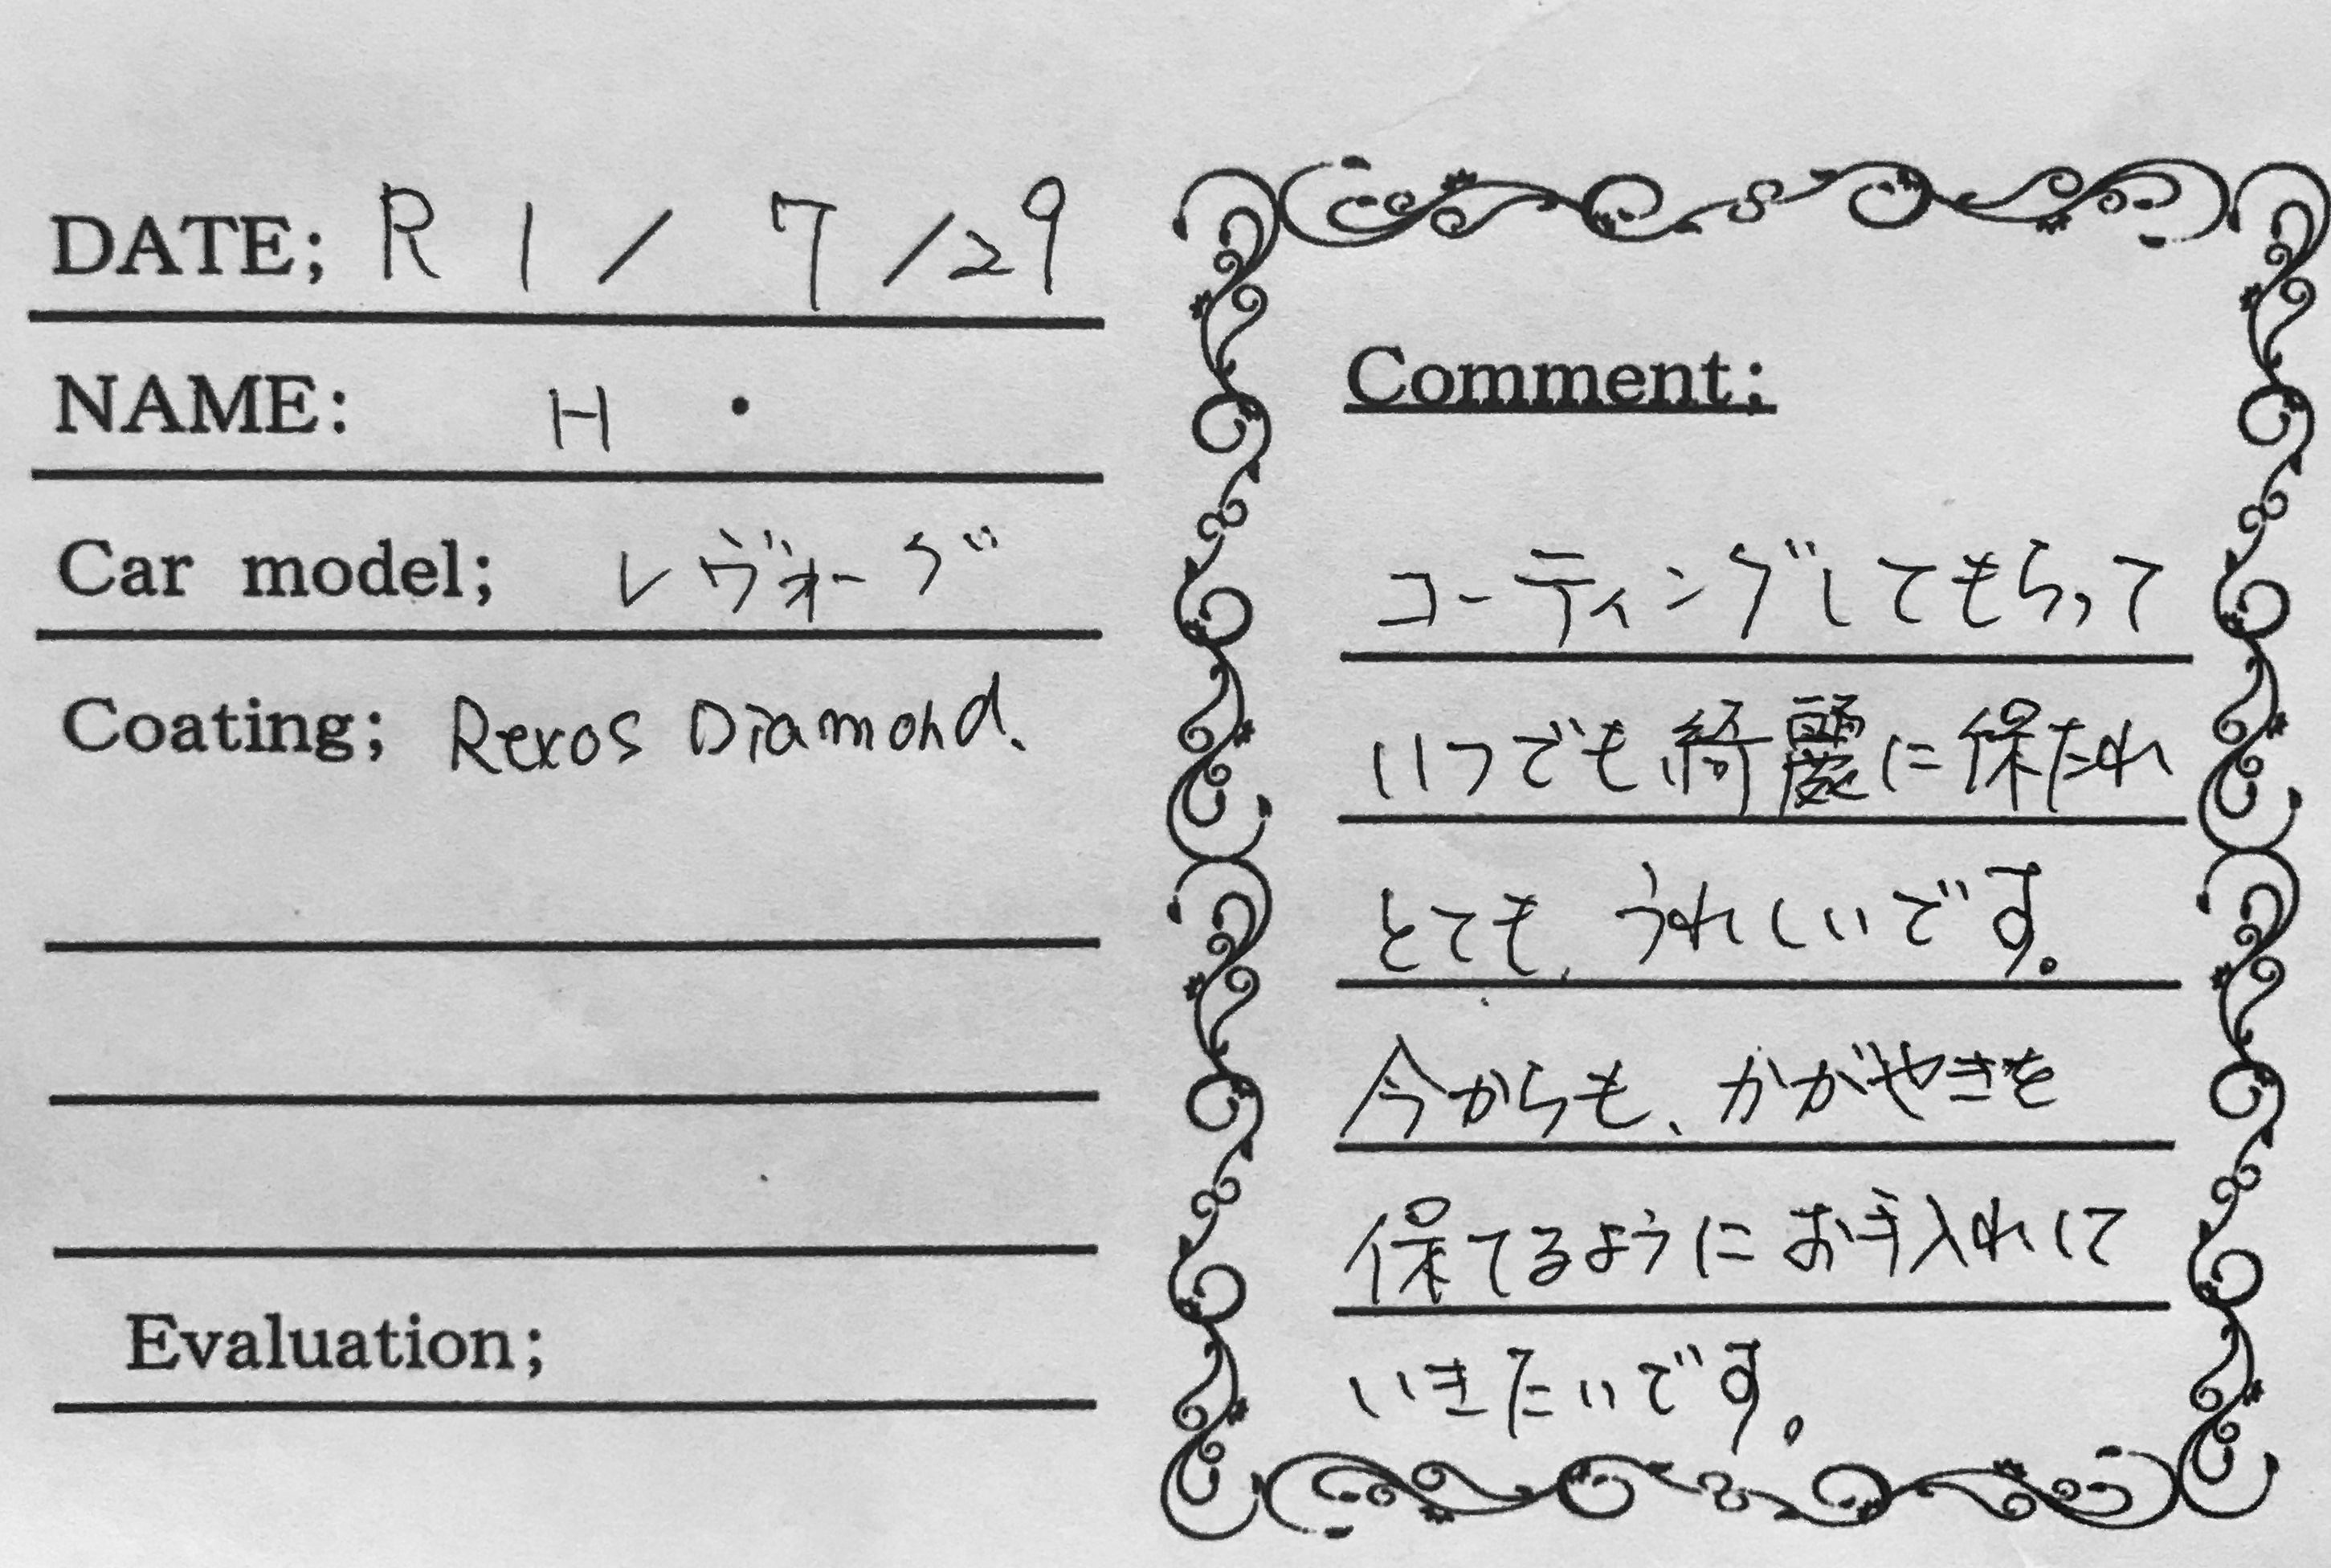 DATE; R 1 / 7 / 29
NAME: H ・
Car model; レヴォーグ
Coating; Rexos Diamond.
Evaluation;
Comment;
コーティングしてもらって
いつでも綺麗に保たれ
とても、うれしいです。
今からも、かがやきを
保てるようにお手入れして
いきたいです。